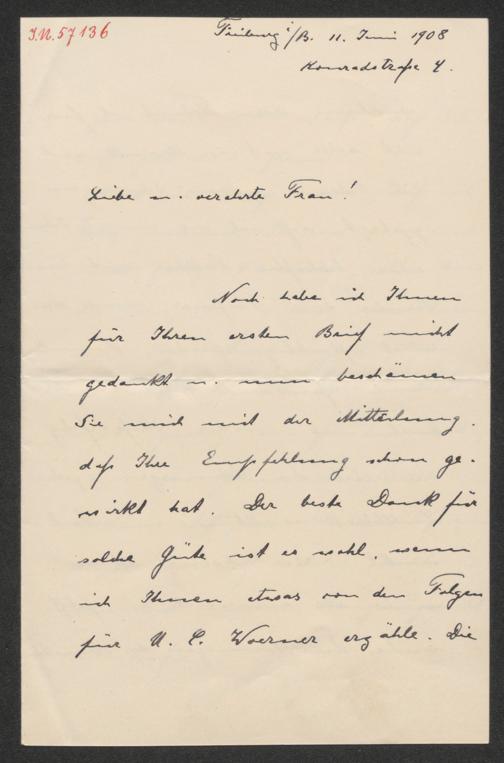 J.N. 57136
Freiburg i/B. 11. Juni 1908
Konradstraße 4.
Liebe u. verehrte Frau!
Noch habe ich Ihnen
für Ihren ersten Brief nicht
gedankt u. nun beschämen
Sie mich mit der Mitteilung,
daß Ihre Empfehlung schon ge-
wirkt hat. Der beste Dank für
solche Güte ist es wohl, wenn
ich Ihnen etwas von den Folgen
für U. C. Woerner erzähle. Die